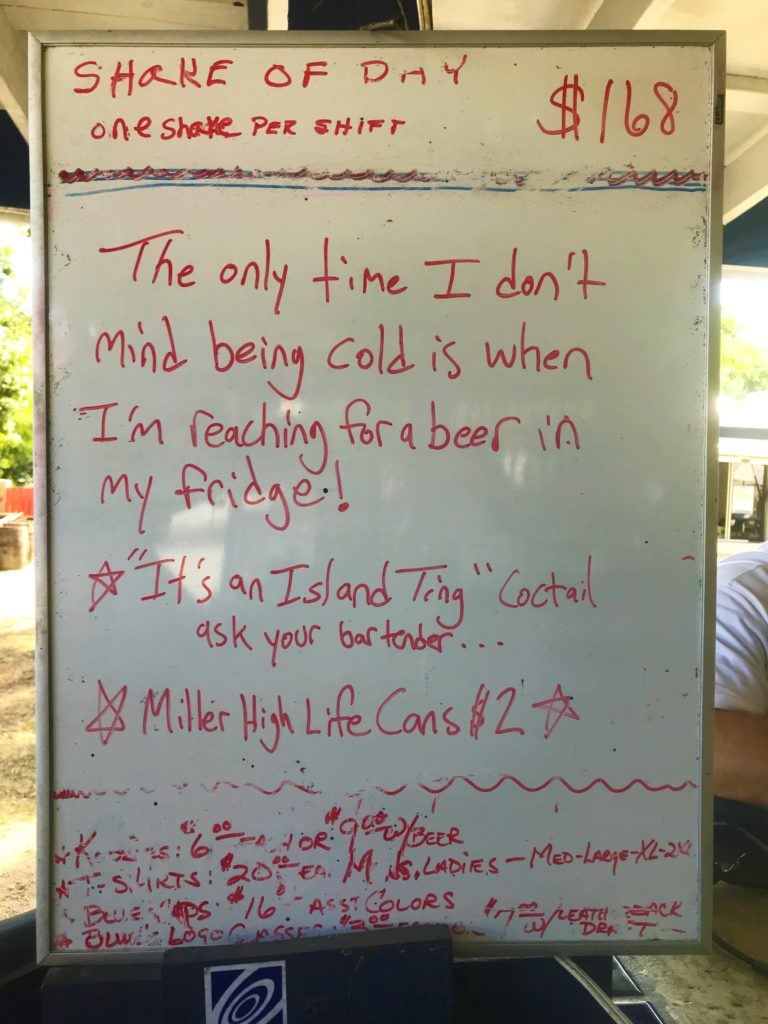 SHAKE OF DAY
one shake PER SHIFT
$168
The only time I don't
mind being cold is when
I'm reaching for a beer in
my fridge!
"It's an Island Ting" Coctail
ask your bartender...
Miller High Life Cans $2
6 00 OR $9 00 W/BEER
$20 00 EA. LADIES - MED-LARGE-XL-2XL
$16 ASST COLORS
LOGO
W/LEATH